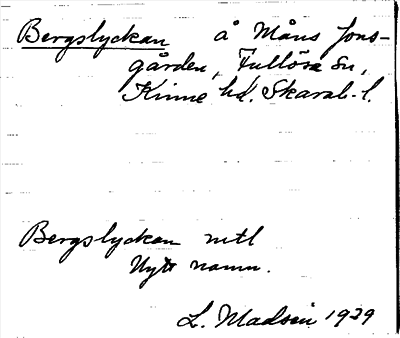 Bergslyckan å Måns Jons-
gården, Fullösa sn,
Kinne hd. Skarab. l.
Bergslyckan mtl
Nytt namn.
L. Madsén 1929